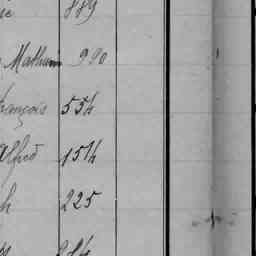 889
Mathurin 990
françois 554
alfred 154
h 225